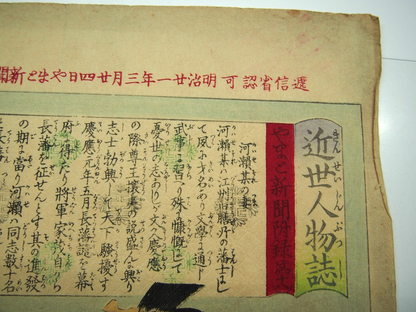 遞信省認可 明治廿一年三月廿四日やまと新聞
近世人物誌
きんせいじんぶつし
やまと新聞附録第十
河瀬某の妻
河瀬某ハ江州膳所の藩士にし
て夙に才名あり文學に通じ
武事に習ひり殊に慷慨にして
憂世の志あり文久慶應
の際尊王攘夷の説盛んに興り
志士勃興して天下騒擾す
慶應元年五月長藩譴を幕
府に得たり將軍家茂自ら
長藩を征せんとす其の進發
の期に當り河瀬ハ同志数十名